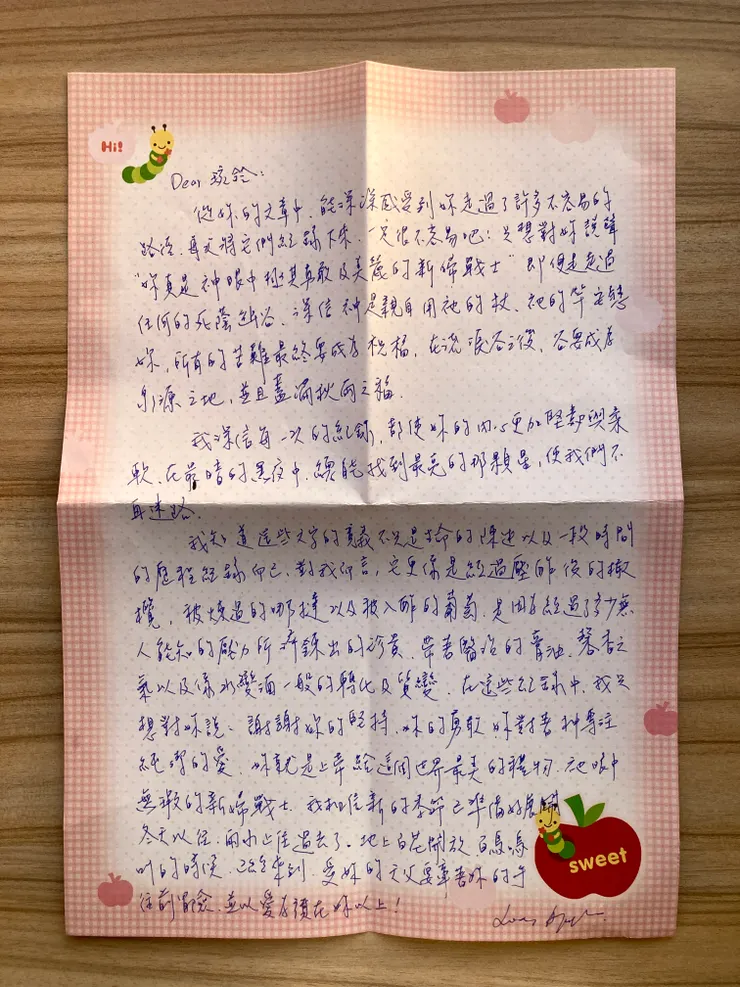 Hi!
Dear 琬鈴:
從妳的文章中,能深深感受到妳走過了許多不容易的
路途,再次將它們紀錄下來,一定很不容易吧!只想對妳說聲
"妳真是神眼中極其勇敢及美麗的新婦戰士" 即便是走過
任何的死蔭幽谷,深信神是親自用祂的杖,祂的竿安慰
妳,所有的苦難最終要成為祝福,在流淚谷之後,谷要成為
泉源之地,並且蓋滿秋雨之福.
我深信每一次的紀錄,都使妳的內心更加堅韌與柔
軟,在最暗的黑夜中,總能找到最亮的那顆星,使我們不
再迷路.
我知道這些文字的意義不只是生命的陳述以及一段時間
的歷程紀錄而已,對我而言,它更像是經過壓榨後的橄
欖,被煉過的哪噠以及被入醡的葡萄,是因為經過了多少無
人能知的壓力所淬鍊出的珍貴,帶著醫治的膏油,馨香之
氣以及像水變酒一般的轉化及質變.在這些紀錄中,我只
想對妳說:謝謝妳的堅持,妳的勇敢,妳對著神專注
純潔的愛.妳就是上帝給這個世界最美的禮物.祂眼中
無瑕的新婦戰士.我相信新的季節已準備好展開
冬天以往,雨水止住過去了.地上百花開放 百鳥鳴
叫的時候 已經來到.愛妳的天父要牽著妳的手
往前窗念,並以愛為旗在妳以上!
sweet